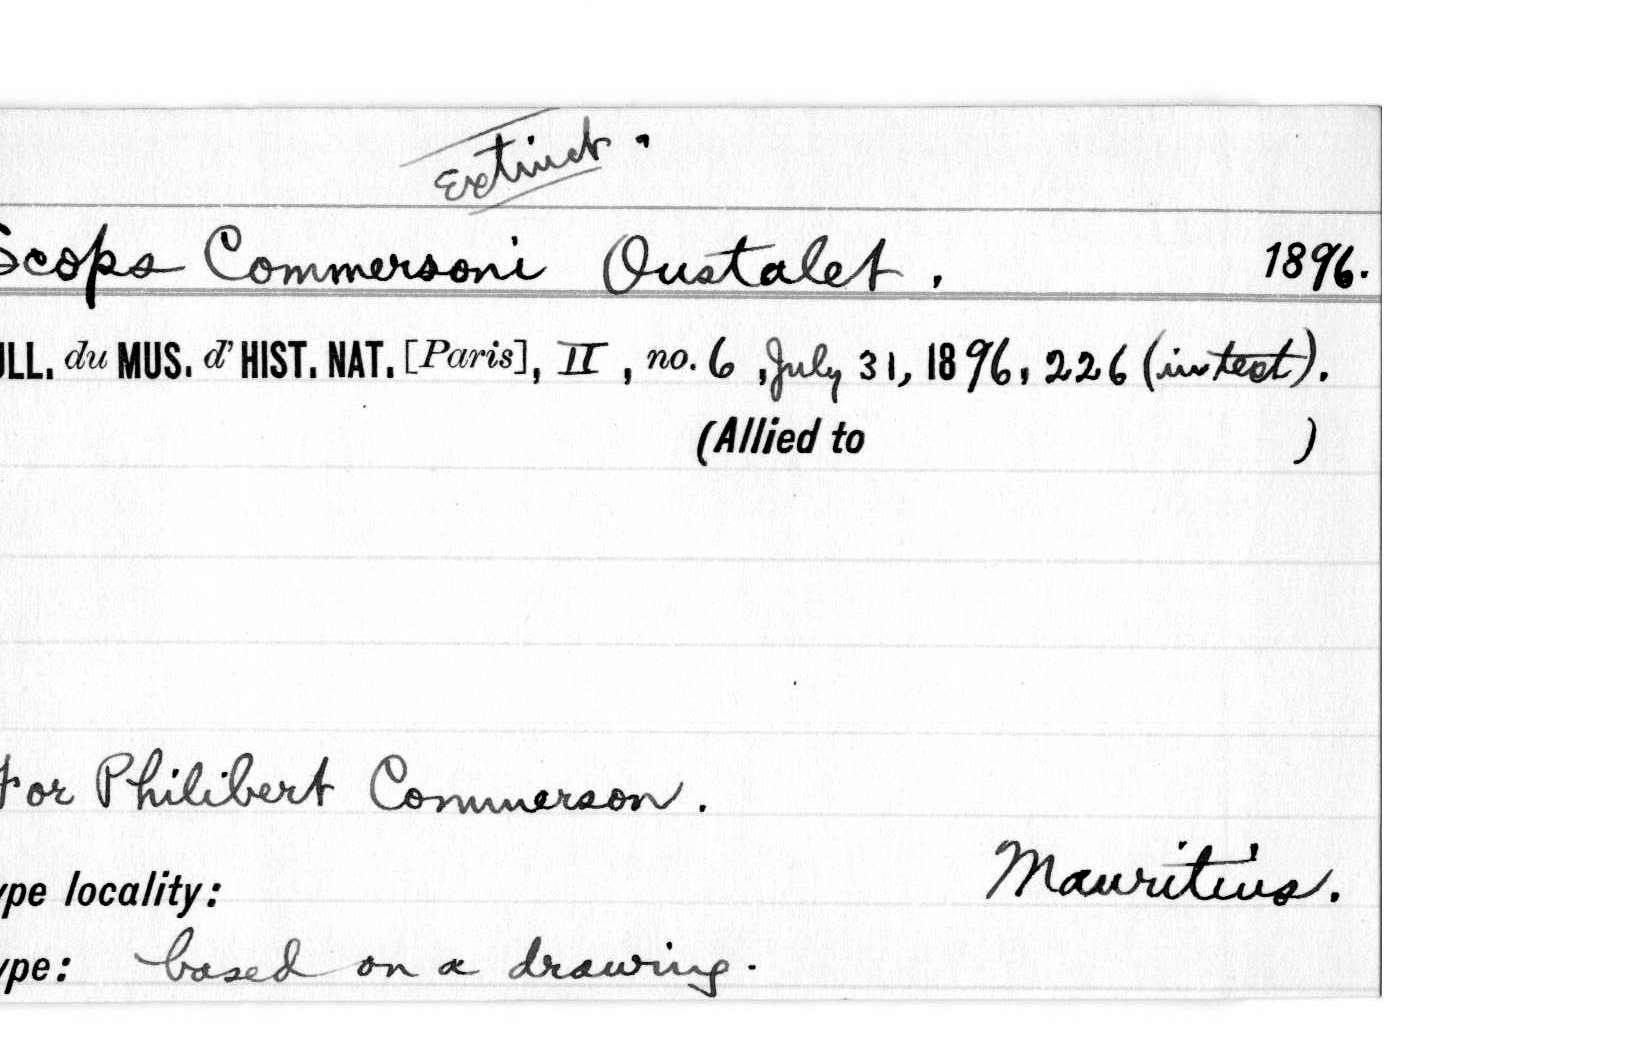 Extinct.
Scops Commersoni Oustalet. 1896.
ULL. du MUS. d' HIST. NAT. [Paris], II, no. 6, July 31, 1896, 226 (in text).
(Allied to )
For Philibert Commerson.
Mauritius.
ype locality:
ype: based on a drawing.